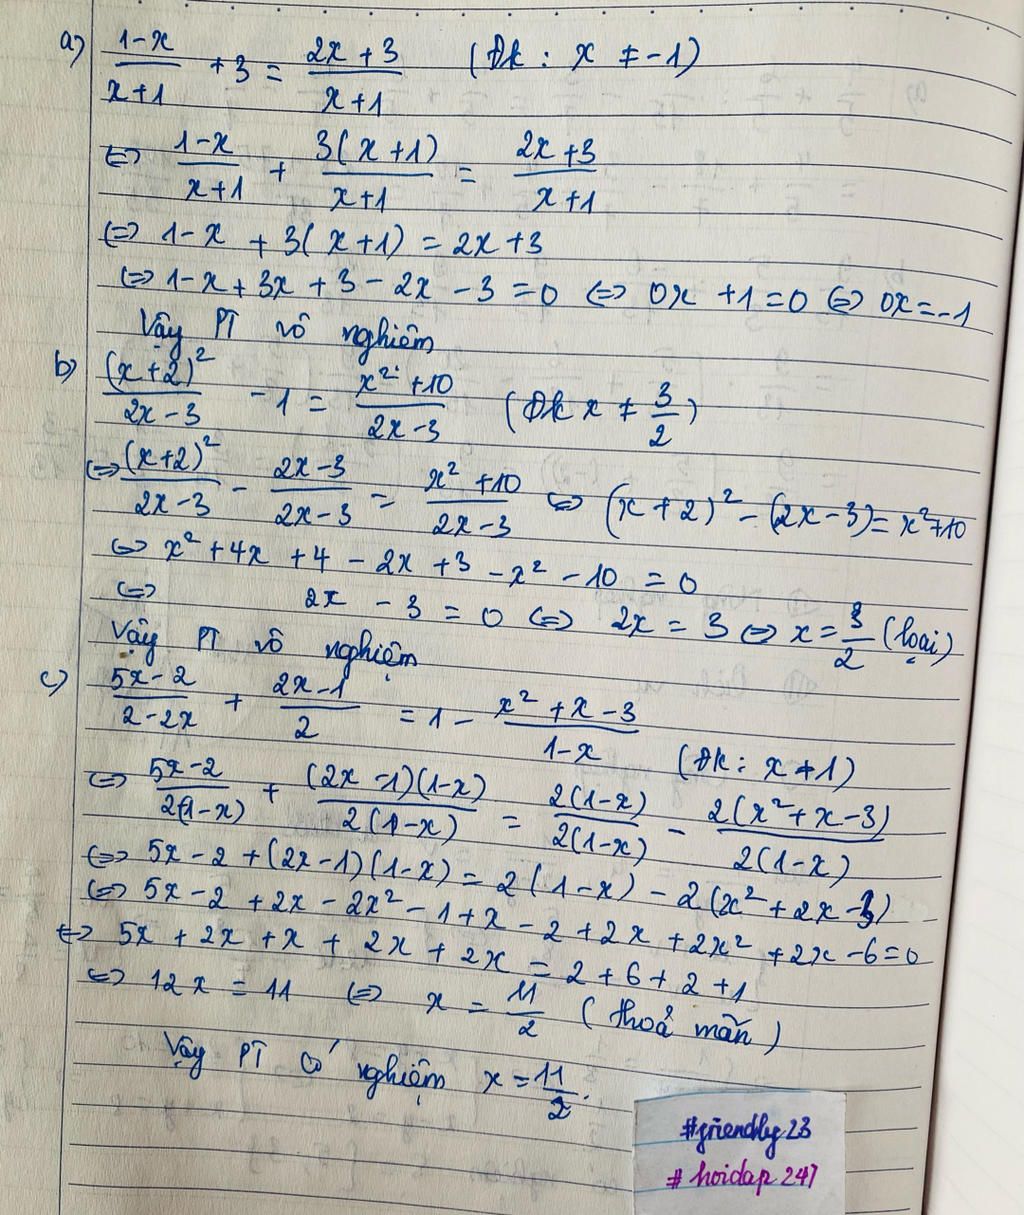 a) (1-x)/(x+1) + 3 = (2x+3)/(x+1) (Đk: x ≠ -1)
⇔ (1-x)/(x+1) + 3(x+1)/(x+1) = (2x+3)/(x+1)
⇔ 1-x + 3(x+1) = 2x+3
⇔ 1-x + 3x + 3 - 2x - 3 = 0 ⇔ 0x + 1 = 0 ⇔ 0x = -1
Vậy PT vô nghiệm
b) (x+2)²/(2x-3) - 1 = (x²+10)/(2x-3) (Đk x ≠ 3/2)
⇔ (x+2)²/(2x-3) - (2x-3)/(2x-3) = (x²+10)/(2x-3) ⇔ (x+2)² - (2x-3) = x²+10
⇔ x² + 4x + 4 - 2x + 3 - x² - 10 = 0
⇔ 2x - 3 = 0 ⇔ 2x = 3 ⇔ x = 3/2 (loại)
Vậy PT vô nghiệm
c) (5x-2)/(2-2x) + (2x-1)/2 = 1 - (x²+x-3)/(1-x) (Đk: x ≠ 1)
⇔ (5x-2)/(2(1-x)) + (2x-1)(1-x)/(2(1-x)) = 2(1-x)/(2(1-x)) - 2(x²+x-3)/(2(1-x))
⇔ 5x-2 + (2x-1)(1-x) = 2(1-x) - 2(x²+2x-3)
⇔ 5x-2 + 2x - 2x² - 1 + x - 2 + 2x + 2x² + 2x - 6 = 0
⇔ 5x + 2x + x + 2x + 2x = 2 + 6 + 2 + 1
⇔ 12x = 11 ⇔ x = 11/2 (thoả mãn)
Vậy PT có nghiệm x = 11/2.
#friendly23
# hoidap 247